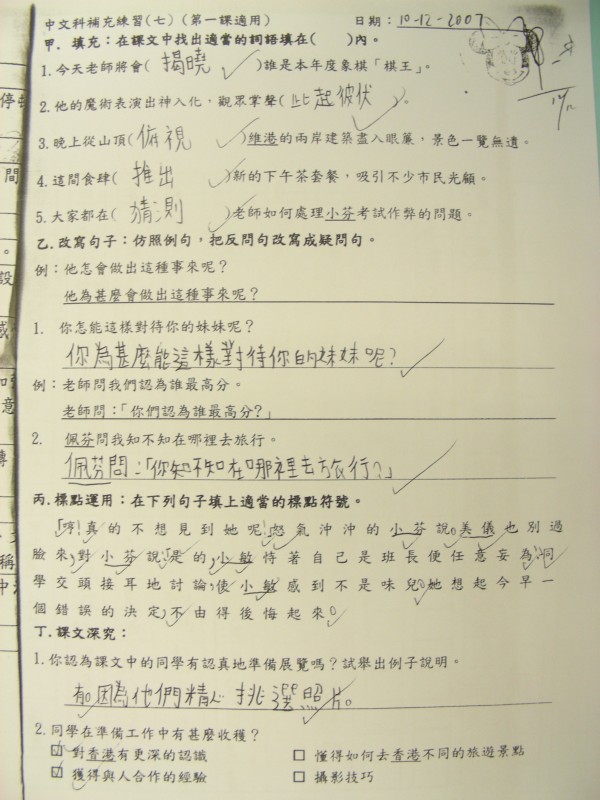 中文科補充練習(七)(第一課適用) 日期：10-12-2007
甲．填充：在課文中找出適當的詞語填在( )內。
1.今天老師將會( 揭曉 )誰是本年度象棋「棋王」。
2.他的魔術表演出神入化，觀眾掌聲( 此起彼伏 )。
3.晚上從山頂( 俯視 )維港的兩岸建築盡入眼簾，景色一覽無遺。
4.這間食肆( 推出 )新的下午茶套餐，吸引不少市民光顧。
5.大家都在( 猜測 )老師如何處理小芬考試作弊的問題。
乙.改寫句子：仿照例句，把反問句改寫成疑問句。
例：他怎會做出這種事來呢？
他為甚麼會做出這種事來呢？
1. 你怎能這樣對待你的妹妹呢？
你為甚麼能這樣對待你的妹妹呢？
例：老師問我們認為誰最高分。
老師問：「你們認為誰最高分？」
2. 佩芬問我知不知在哪裡去旅行。
佩芬問：「你知不知在哪裡去旅行？」
丙.標點運用：在下列句子填上適當的標點符號。
「哼！真的不想見到她呢！」怒氣沖沖的小芬說。美儀也別過
臉來，對小芬說：「是的，小敏恃著自己是班長便任意妄為。」同
學交頭接耳地討論，使小敏感到不是味兒。她想起今早一
個錯誤的決定，不由得後悔起來。
丁.課文深究：
1.你認為課文中的同學有認真地準備展覽嗎？試舉出例子說明。
有。因為他們精心挑選照片。
2.同學在準備工作中有甚麼收穫？
☑ 對香港有更深的認識 □ 懂得如何去香港不同的旅遊景點
☑ 獲得與人合作的經驗 □ 攝影技巧